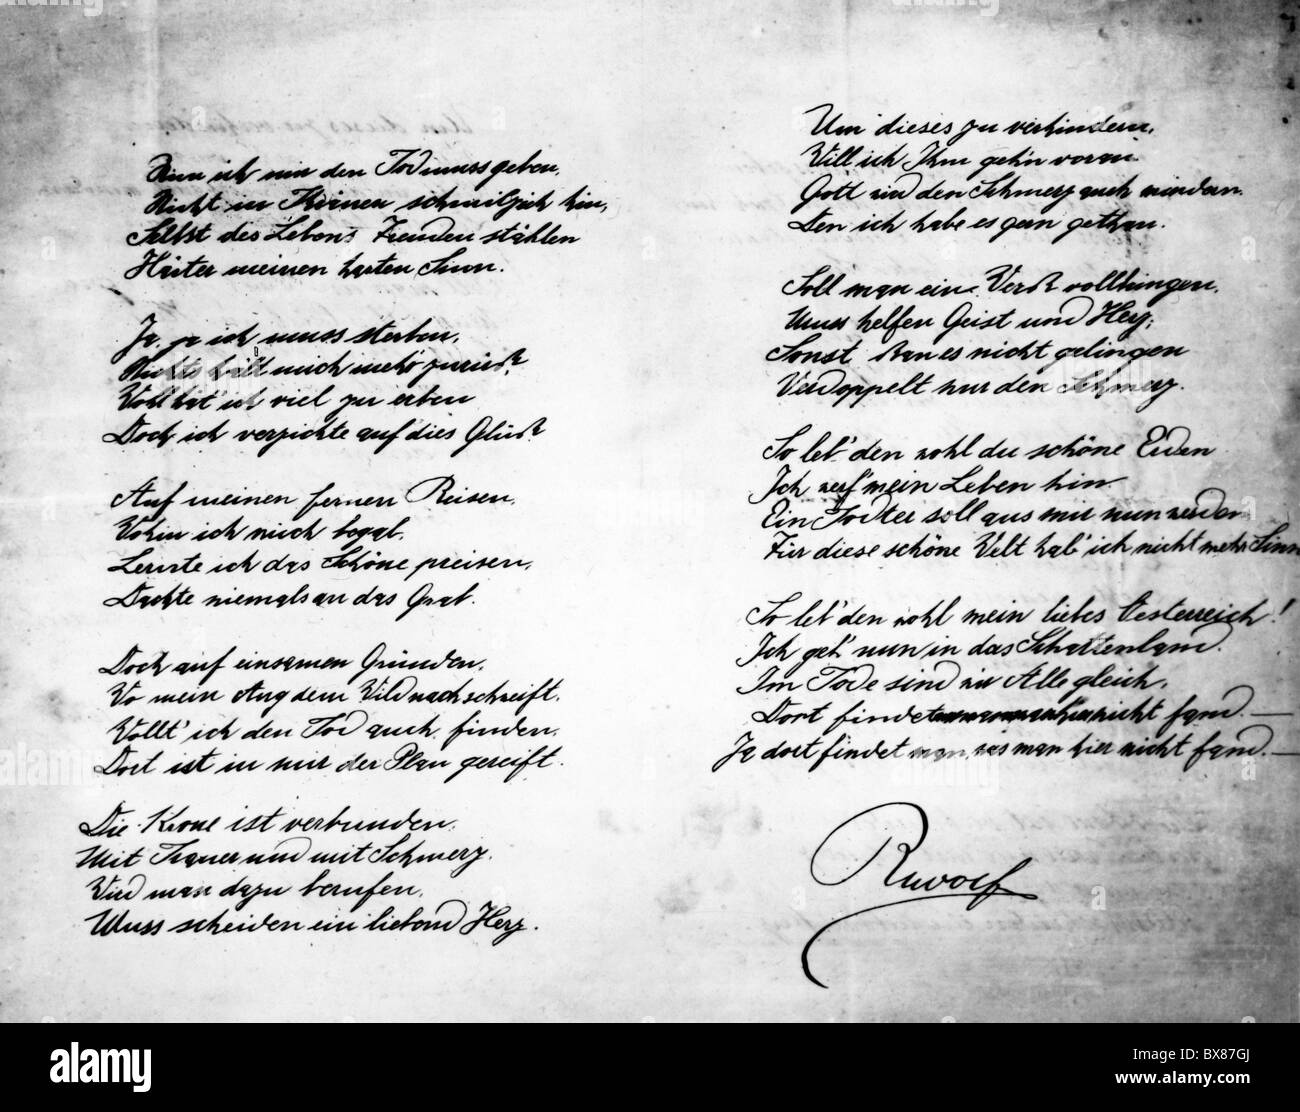 ich mir den Tod muss geben,
Nicht in schmilzt ich hin,
Selbst des Lebens Freuden stählen
Härter meinen harten Sinn.
Ja, ja ich muss sterben,
Nichts hält mich mehr zurück
Wohl hat ich viel zu erben
Doch ich verzichte auf dies Glück
Auf meinen fernen Reisen,
Wohin ich mich begab,
Lernte ich das Schöne preisen,
Dachte niemals an das Grab.
Doch auf einsamen Gründen,
Wo mein Aug dem Wild nachschweift,
Wollt' ich den Tod auch finden,
Dort ist in mir der Plan gereift.
Die Krone ist verbunden,
Mit Trauer und mit Schmerz.
Wird man dazu berufen,
Muss scheiden ein liebend Herz.
Um dieses zu verhindern,
Will ich Ihm geh'n voran
Gott wird den Schmerz auch mindern
Den ich habe es gern gethan.
Soll man ein Werk vollbringen,
Muss helfen Geist und Herz,
Sonst kan es nicht gelingen
Verdoppelt nur den Schmerz.
So leb' den wohl du schöne Erden
Ich werf mein Leben hin
Ein Todter soll aus mir nun werden
Für diese schöne Welt hab' ich nicht mehr Sinn
So leb' den wohl mein liebes Oesterreich!
Ich geh' nun in das Schattenland.
Im Tode sind wir Alle gleich,
Dort findet nicht fand. —
Ja dort findet man, was man hier nicht fand. —
Rudolf
alamy
Image ID: BX87GJ
www.alamy.com